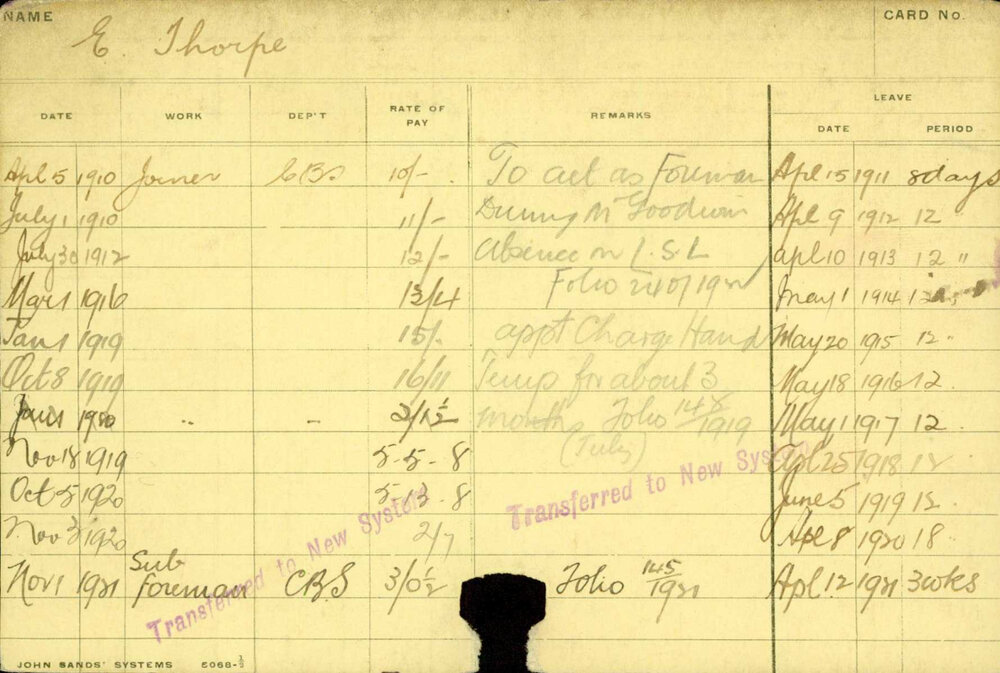 NAME
E. Thorpe
CARD No.
DATE WORK DEP'T RATE OF PAY REMARKS LEAVE
DATE PERIOD
Apl 5 1910 Joiner CBS 10/- To act as Foreman Apl 15 1911 8days
July 1 1910 11/- During Mr Goodwin Apl 9 1912 12 "
July 30 1912 12/- Absence on L.S.L Apl 10 1913 12 "
Mar 1 1916 13/4 Folio May 1 1914 12
Jan 1 1919 15/- appt Charge Hand May 20 1915 12 "
Oct 8 1919 16/11 Temp for about 3 May 18 1916 12
Jan 1 1920 " - 2/1½ month Folio 148/1919 May 1 1917 12
Nov 18 1919 5-5-8 Apl 25 1918 12
Oct 5 1920 5-13-8 June 5 1919 12
Nov 3 1920 2/7 Apl 8 1920 18
Nov 1 1921 Sub foreman C.B.S 3/0½ Folio 145/1921 Apl. 12 1921 3wks
Transferred to New System
Transferred to New System
JOHN SANDS' SYSTEMS 6068-½